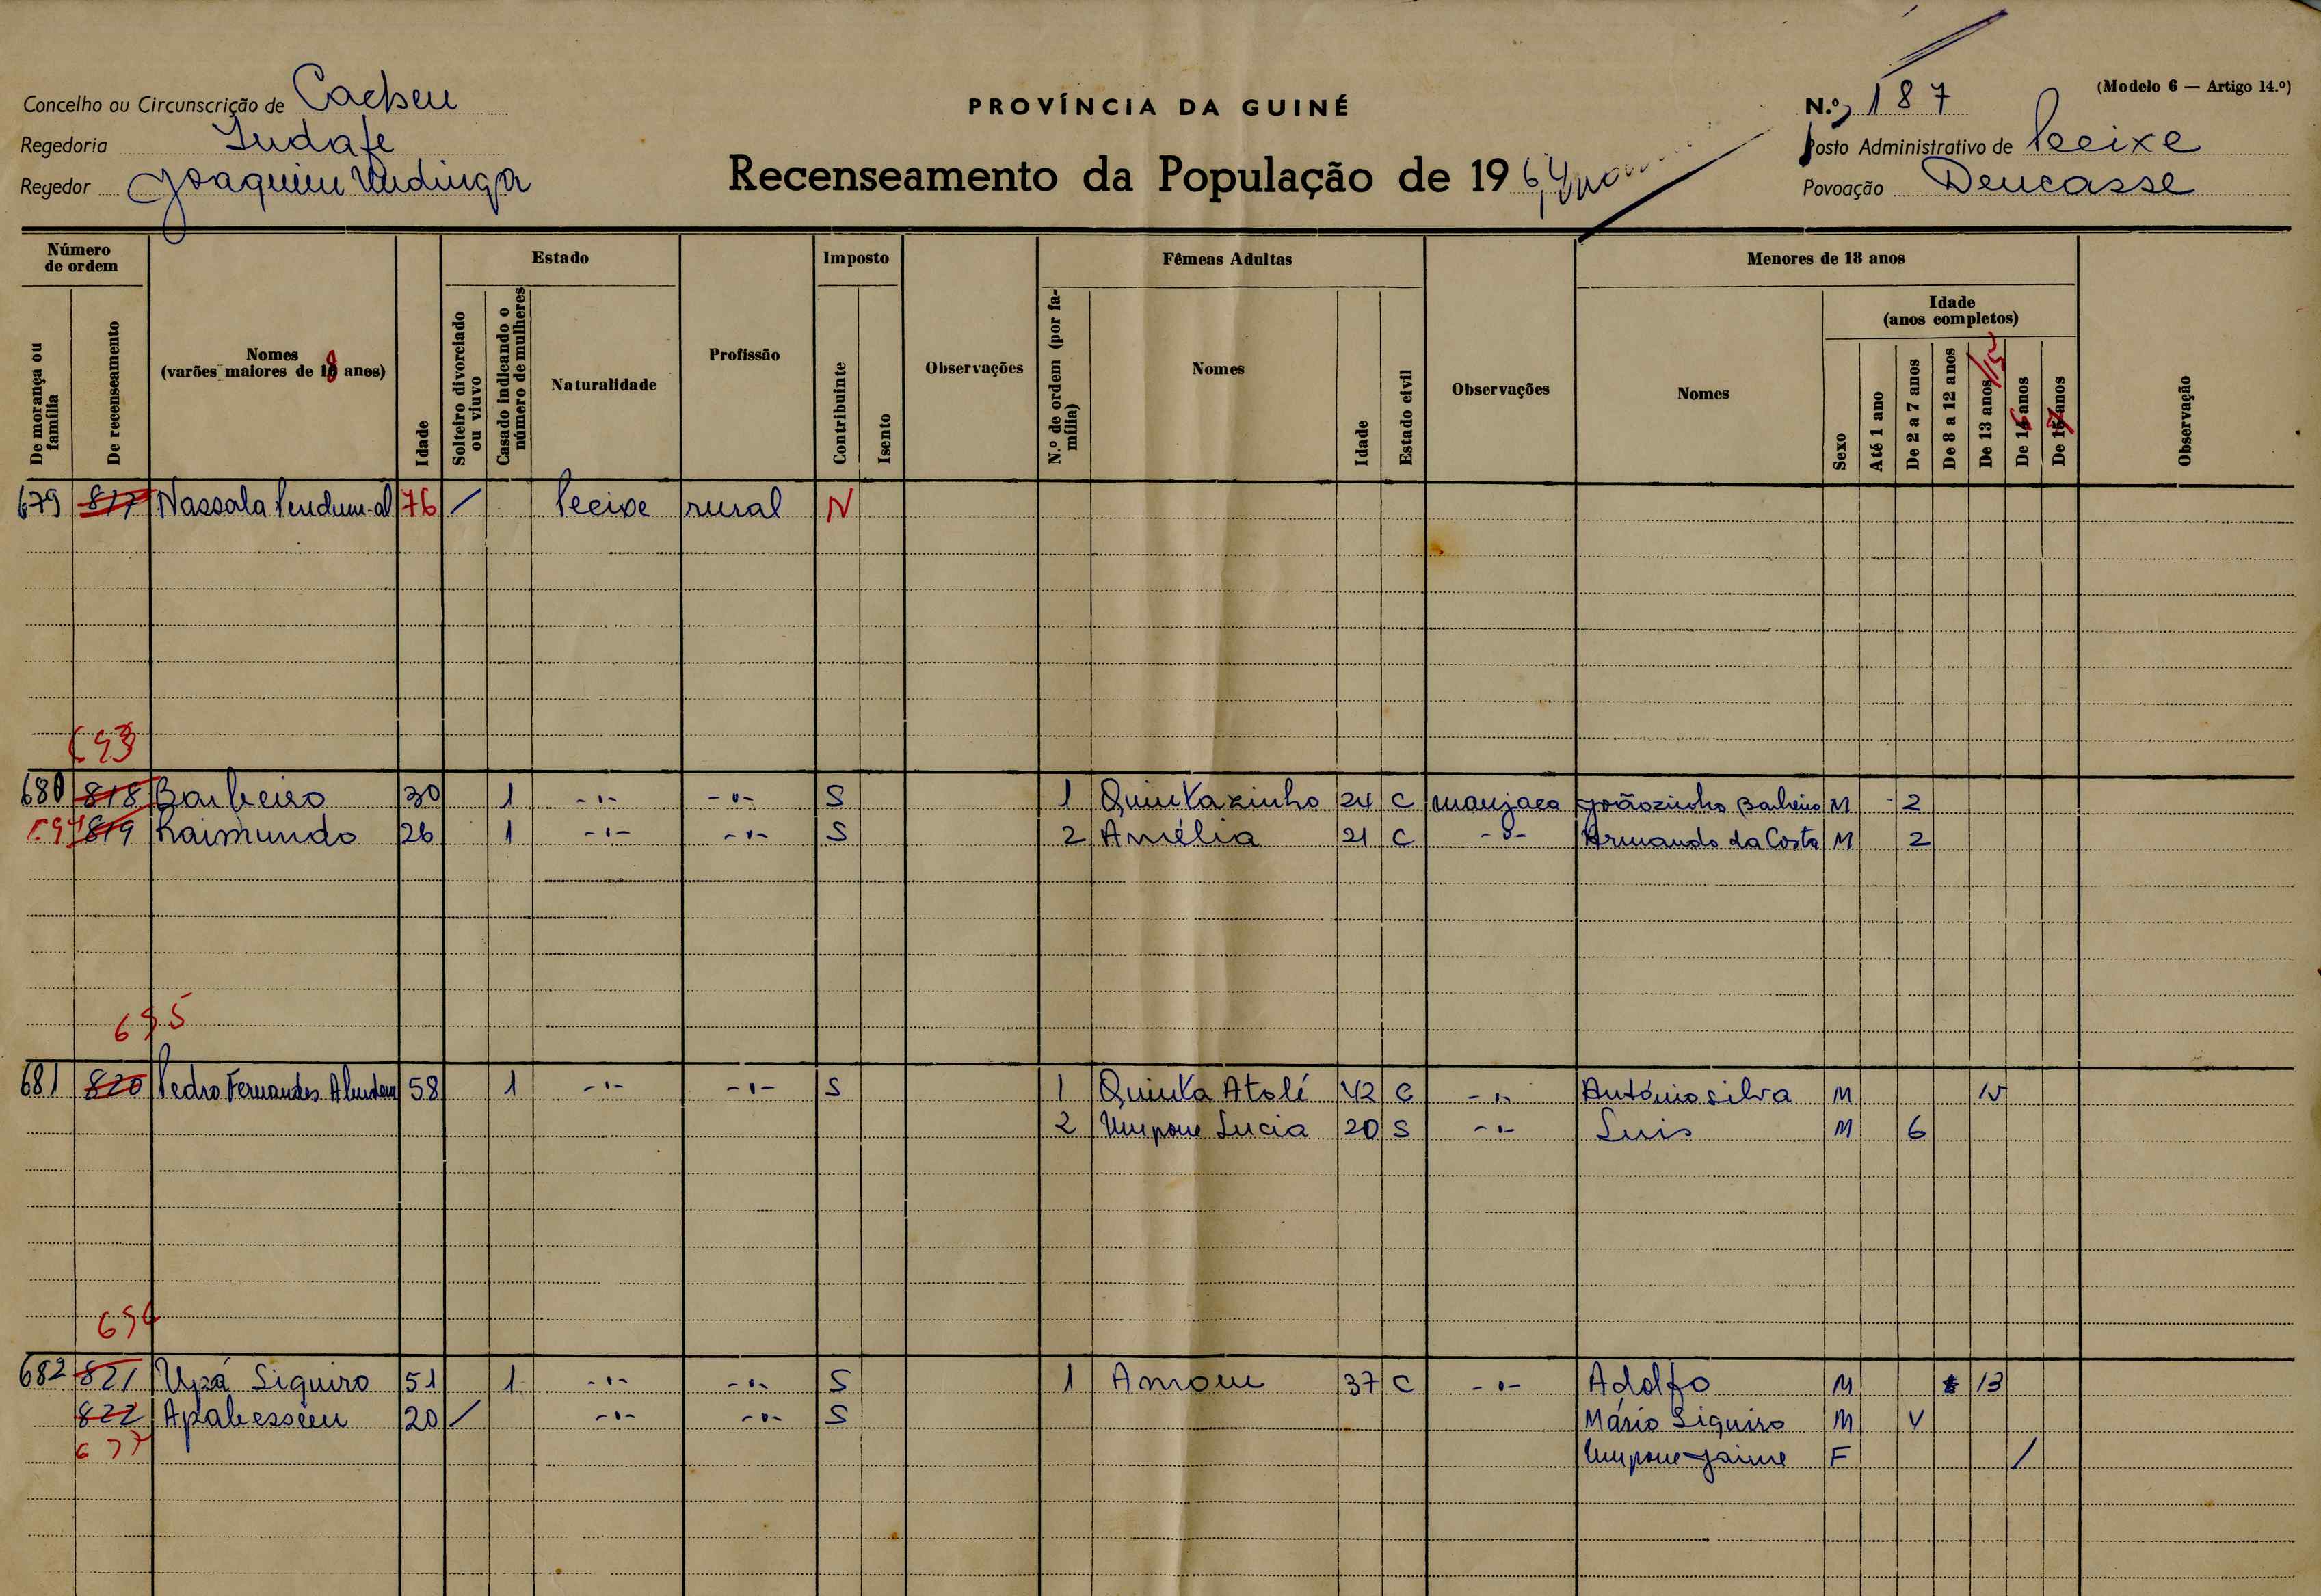 Concelho ou Circunscrição de Cacheu
Regedoria
Regedor Joaquim
PROVÍNCIA DA GUINÉ
Recenseamento da População de 1964
(Modelo 6 — Artigo 14.º)
N.º 187
Posto Administrativo de Pecixe
Povoação
Número de ordem
De morança ou família
De recenseamento
Nomes (varões maiores de 18 anos)
Idade
Estado
Solteiro divorciado ou viuvo
Casado indicando o número de mulheres
Naturalidade
Profissão
Imposto
Contribuinte
Isento
Observações
Fêmeas Adultas
N.º de ordem (por família)
Nomes
Idade
Estado civil
Observações
Menores de 18 anos
Nomes
Sexo
Idade (anos completos)
Até 1 ano
De 2 a 7 anos
De 8 a 12 anos
De 13 anos /15
De 16 anos
De 17 anos
Observação
679 817 Nassala 76 / Pecixe rural N
693
680 818 Barbeiro 30 1 -"- -"- S 1 Quintazinho 24 C manjaca Joãozinho Barbeiro M 2
694 819 Raimundo 26 1 -"- -"- S 2 Amélia 21 C -"- Armando da Costa M 2
695
681 820 Pedro Fernandes 58 1 -"- -"- S 1 Quinta Atolé 42 C -"- António Silva M
2 Lucia 20 S -"- Luis M 6
696
682 821 Upá Siquiro 51 1 -"- -"- S 1 37 C -"- Adolfo M 13
822 20 / -"- -"- S Mário Siquiro M
697 Jaime F /